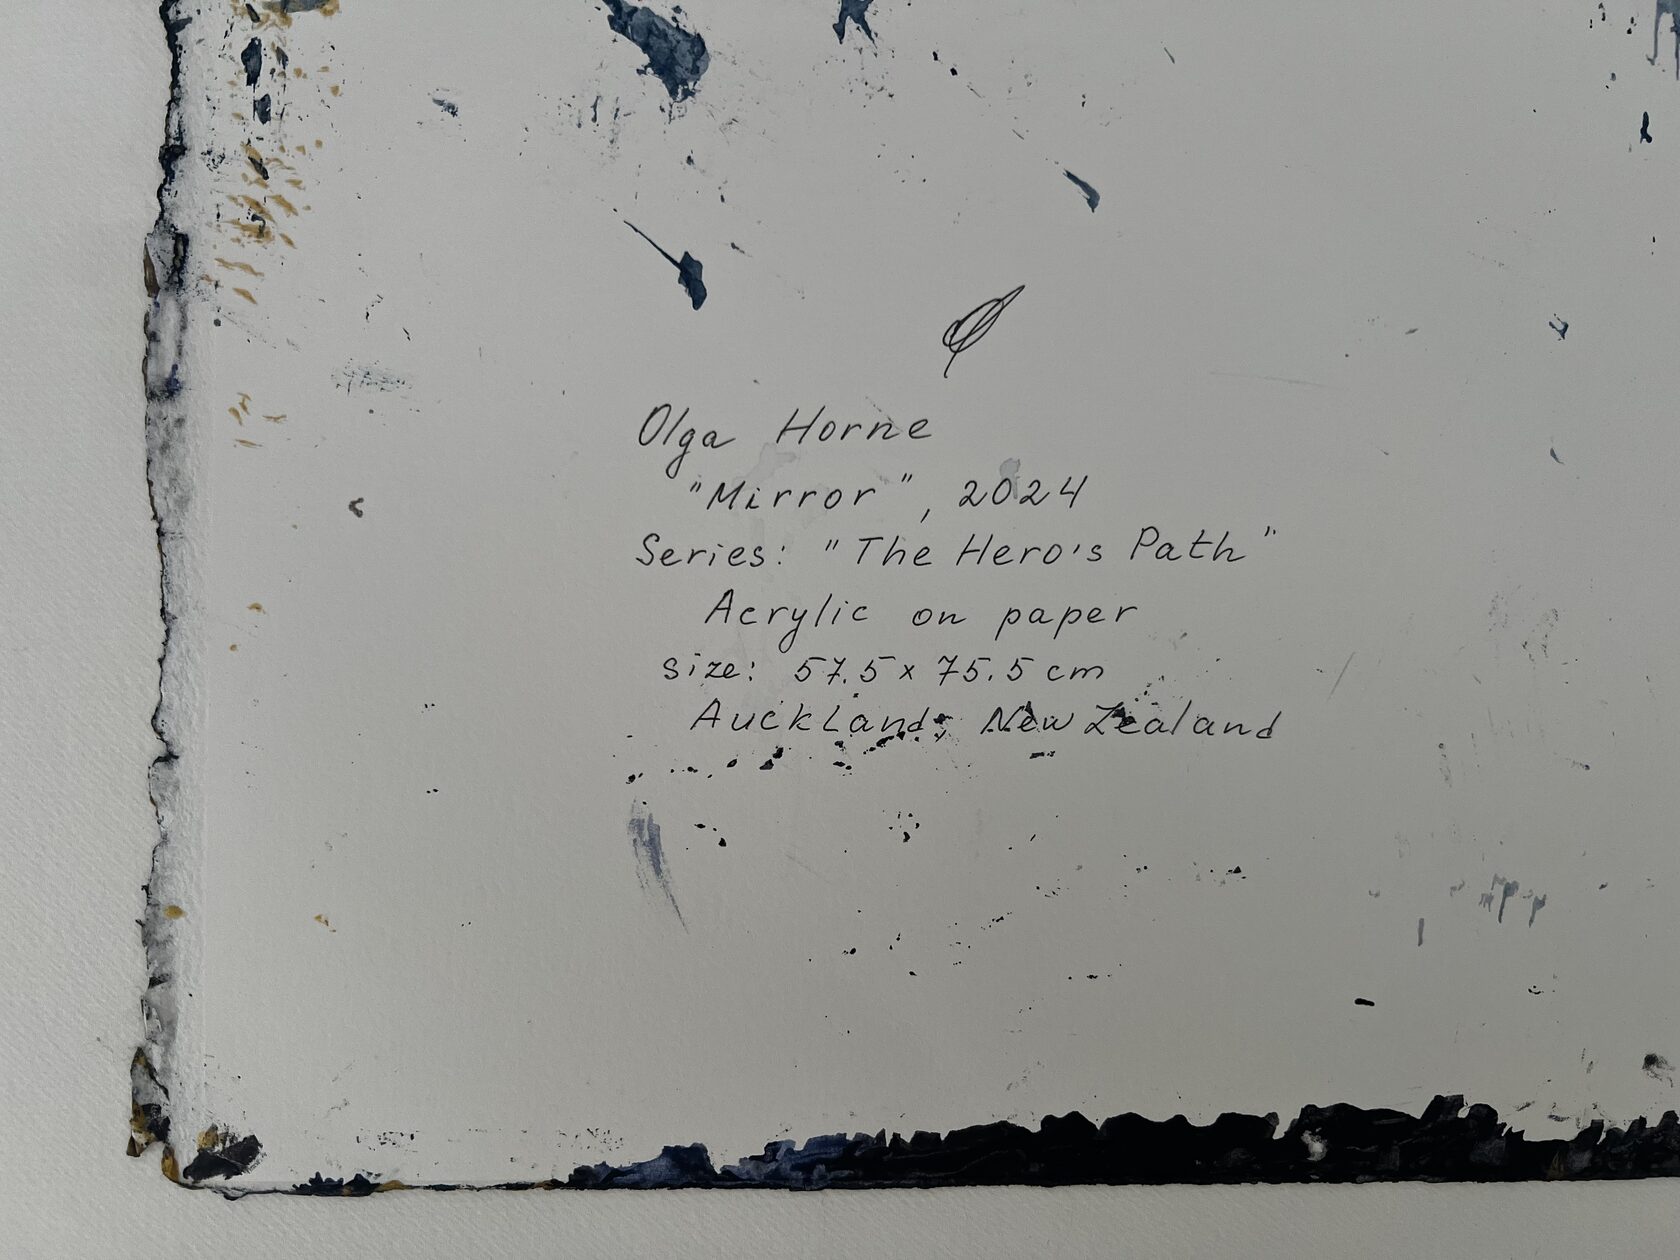 Olga Horne
"Mirror", 2024
Series: "The Hero's Path"
Acrylic on paper
size: 57.5 x 75.5 cm
Auckland, New Zealand